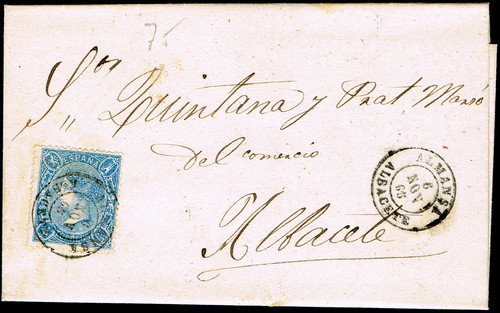 75
S.res
Quintana y Prat, Manso
del comercio
Albacete
ESPAÑA
ALMANSA
6
NOV
65
ALBACETE